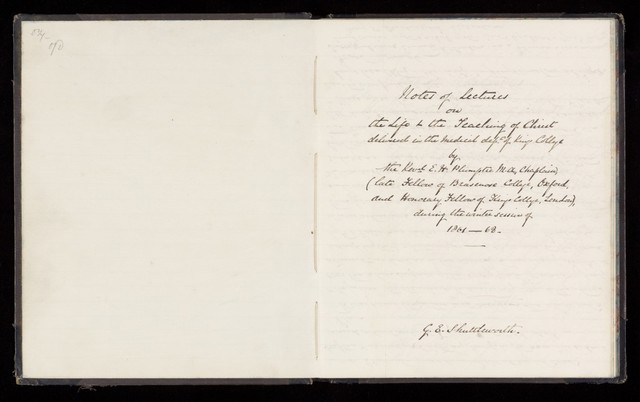 Notes of Lectures
on
the Life & the Teaching of Christ
delivered in the medical dept. of Kings College
by
the Revd. E. H. Plumptre M.A., Chaplain,
(late Fellow of Brasenose College, Oxford,
and Honorary Fellow of Kings College, London),
during the winter session of
1861 — 62 -
G. E. Shuttleworth.